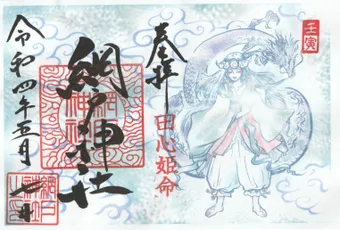 壬寅
奉拝
田心姫命
網戸神社
令和四年五月